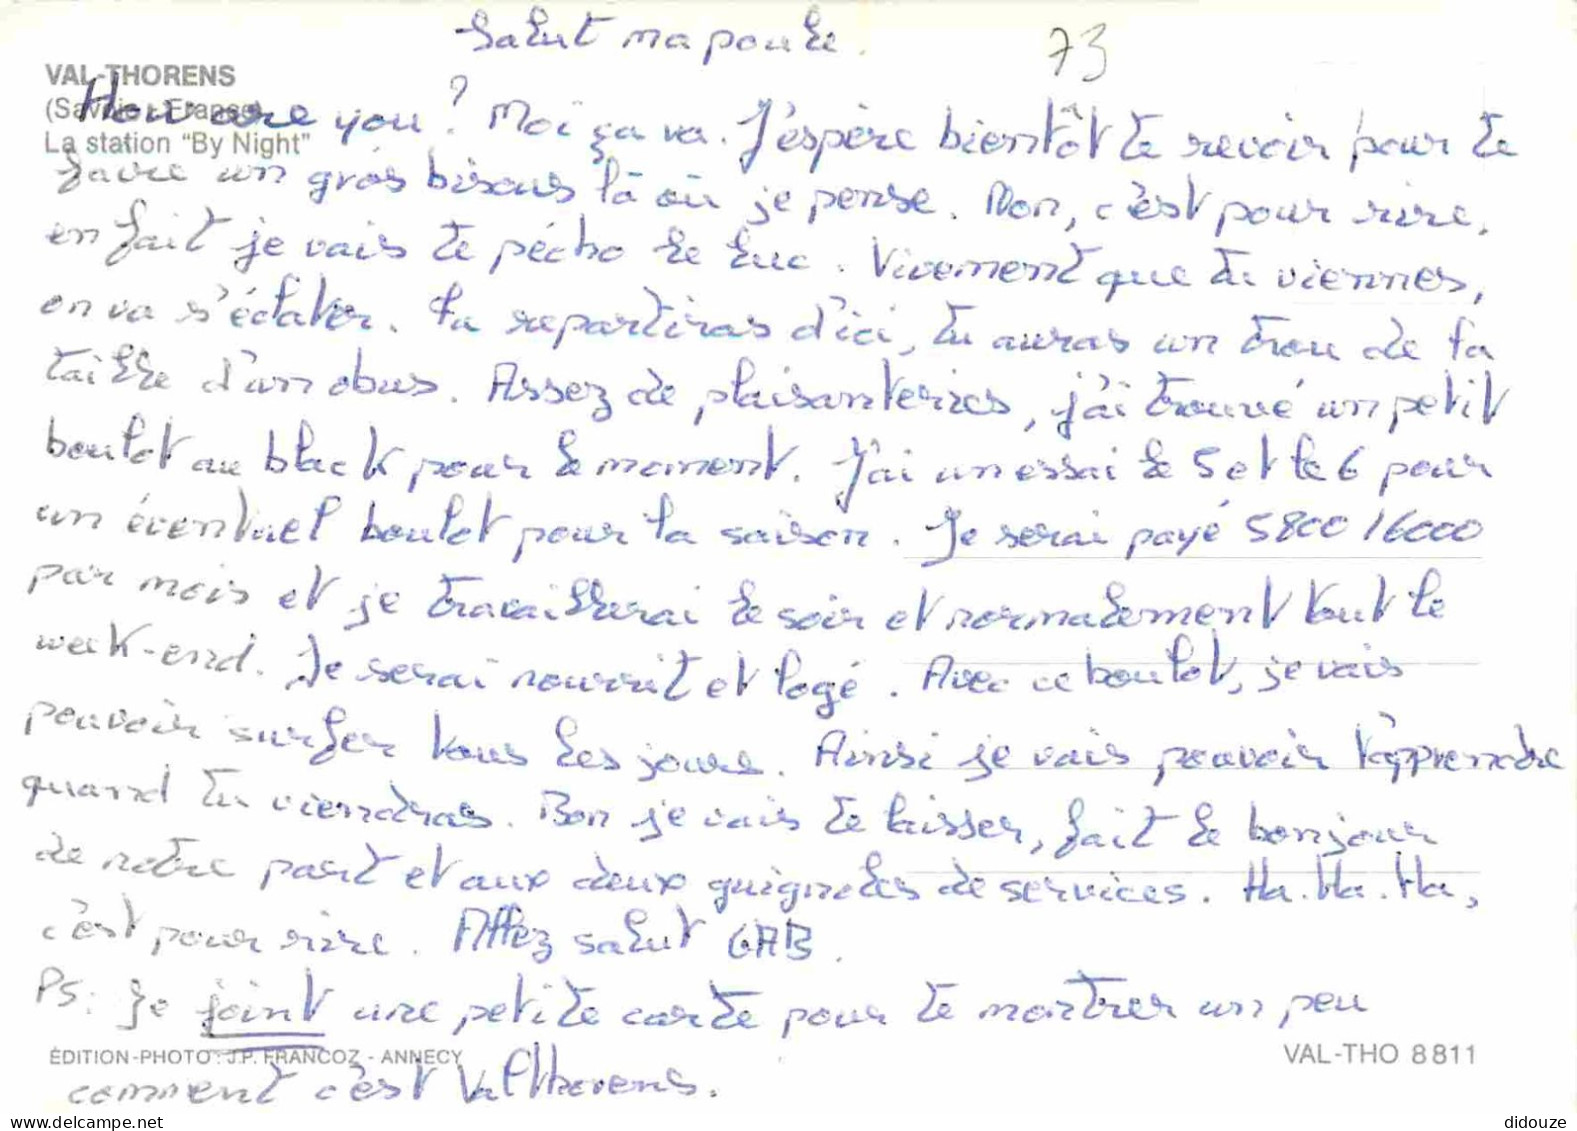 Salut ma poule.
73
VAL-THORENS
(Savoie - France)
La station "By Night"
How are you? Moi ça va. J'espère bientôt te revoir pour te
faire un gros bisous là où je pense. Non, c'est pour rire,
en fait je vais te pécho le luc. Vivement que tu viennes,
on va s'éclater. Tu repartiras d'ici, tu auras un trou de la
taille d'un obus. Assez de plaisanteries, j'ai trouvé un petit
boulot au black pour le moment. J'ai un essai le 5 et le 6 pour
un éventuel boulot pour la saison. Je serai payé 5800/6000
par mois et je travaillerai le soir et normalement tout le
week-end. Je serai nourrit et logé. Avec ce boulot, je vais
pouvoir surfer tous les jours. Ainsi je vais pouvoir t'apprendre
quand tu viendras. Bon je vais te laisser, fait le bonjour
de notre part et aux deux guignoles de services. Ha. Ha. Ha,
c'est pour rire. Allez salut GAB.
PS: Je joint une petite carte pour te montrer un peu
ÉDITION-PHOTO : J.P. FRANCOZ - ANNECY
VAL-THO 8811
comment c'est Valthorens.
didouze